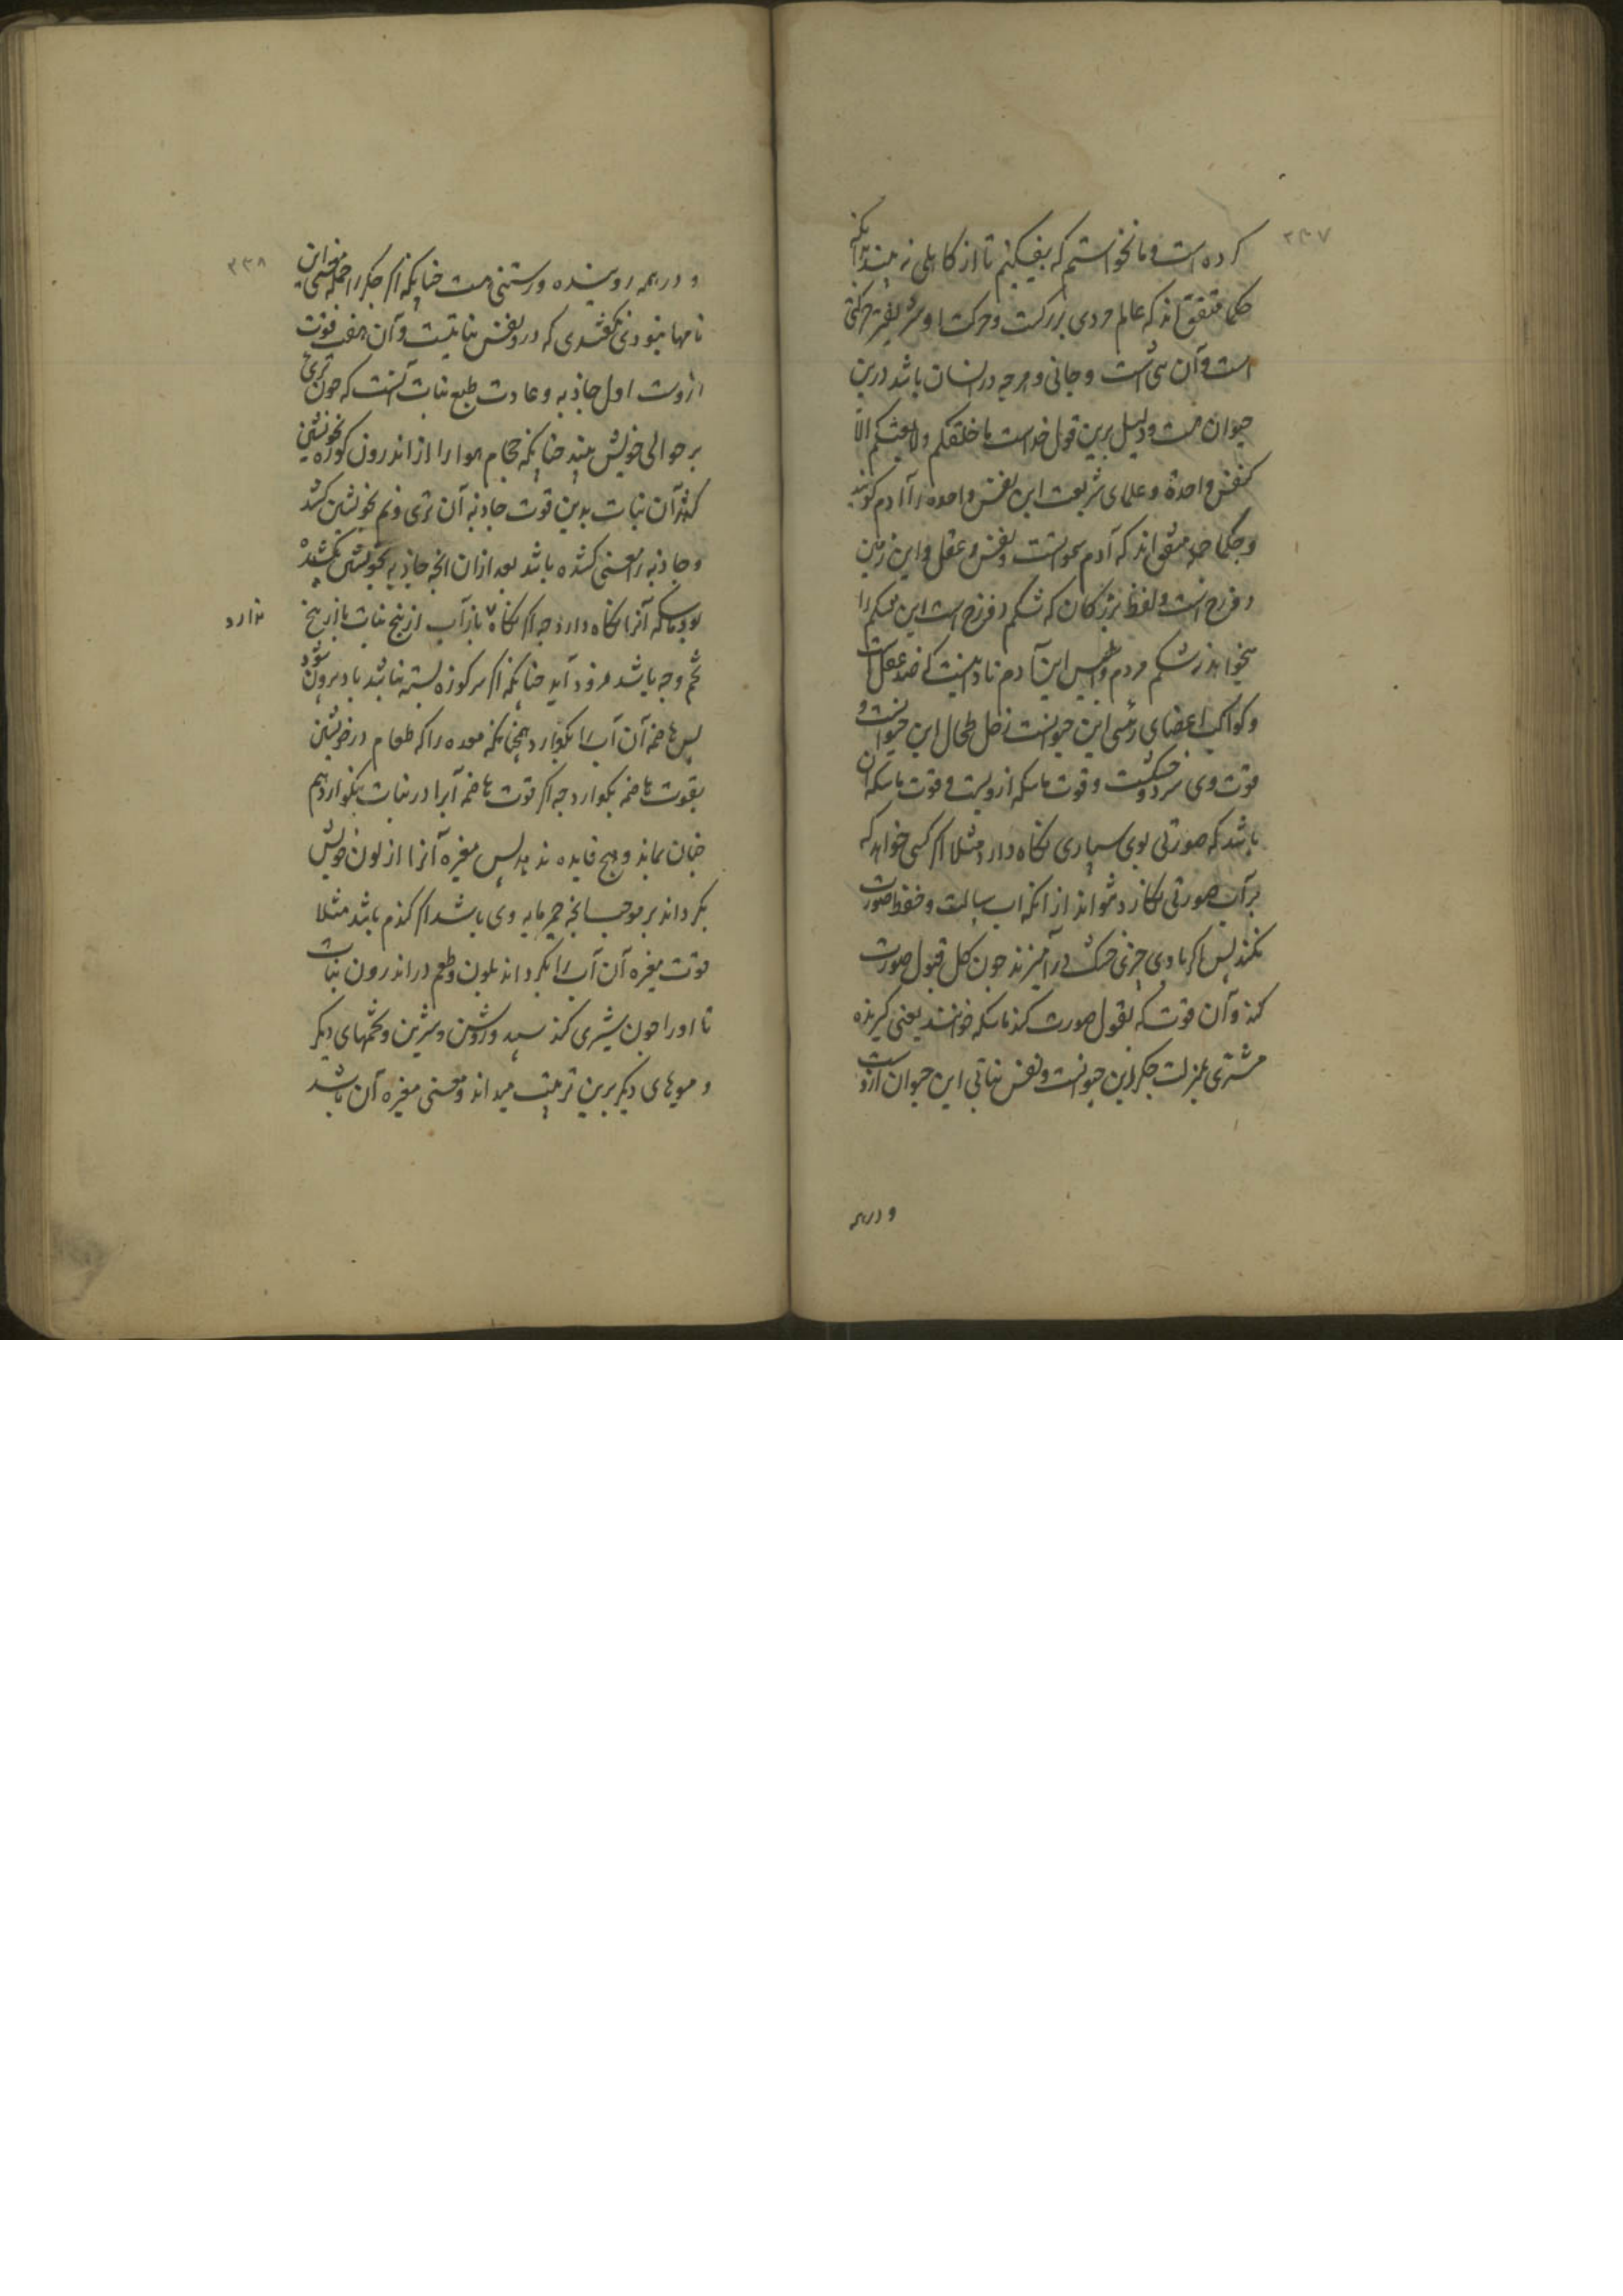 ۲۳۷
کرده است و ما نخواستیم که بیفکنیم تا از کاهلی نه بیند بدانکه
حکما متفق اند که عالم مردی بزرگست و حرکت او شریفتر حرکتی
است و آن حی است و جانی و هرچه در انسان باشد درین
حیوان هست و دلیل برین قول خداست ما خلقکم ولا بعثکم الا
کنفس واحدة و علمای شریعت این نفس واحده را آدم گویند
و حکما متفق اند که آدم نفس و عقل و این زمین
دوزخ است و لفظ بزرگان که شکم دوزخ است این شکم را
میخواهد نه شکم مردم و ابلیس این آدم نادانیست که ضد عقل است
و کواکب اعضای رئسی این حیوانست زحل طحال این حیوانست و
قوت وی سرد و خشکست و قوت ماسکه ازویست و قوت ماسکه آن
باشد که صورتی بوی سپاری نگاه دارد مثلا اگر کسی خواهد که
بر آب صورتی نگارد نتواند از آنکه آب سیالست و حفظ صورت
نکند پس اگر با وی چیزی خشک در آمیزند چون گل قبول صورت
کند و آن قوت که بقبول صورت کند ماسکه خوانند یعنی گیرنده
مشتری بمنزلت جگر این حیوانست و نفس نباتی این حیوان ازوست
و در همه
۲۳۸
و در همه روینده و رستنی هست چنانکه اگر جگر را جمله این
نامها نبودی نگفتندی که درو نفس نباتیست و آن هفت قوت
ازوست اول جاذبه و عادت طبع نبات آنست که چون تری
بر حوالی خویش بیند چنانکه حجام هوا را از اندرون کوزه بخویشتن
کشد آن نبات بدین قوت جاذبه آن تری و نم بخویشتن کشد
و جاذبه را معنی کشنده باشد بعد از آن آنچه جاذبه بخویشتن کشد
بود ماسکه آنرا نگاه دارد چه اگر نگاه باز آب از بیخ نبات باز بیخ
ندارد
تخم و جه باشد فرود آید چنانکه اگر سر کوزه بسته نباشد باد بیرون شود
پس هاضمه آن آب را بگوارد همچنانکه معده را که طعام در خویشتن
بقوت هاضمه بگوارد چه اگر قوت هاضمه آبرا در نبات نگواردهم
چنان بماند و هیچ فایده ندهد پس مغیره آنرا از لون خویش
بگرداند بر موجب آنچه خمیر مایه وی باشد اگر گندم باشد مثلا
قوت مغیره آن آب را بگرداند بلون و طعم در اندرون نبات
تا او را چون شیری کند سپید و روشن و شیرین و تخمهای دیگر
و میوهای دیگر برین ترتیب میداند و معنی مغیره آن باشد